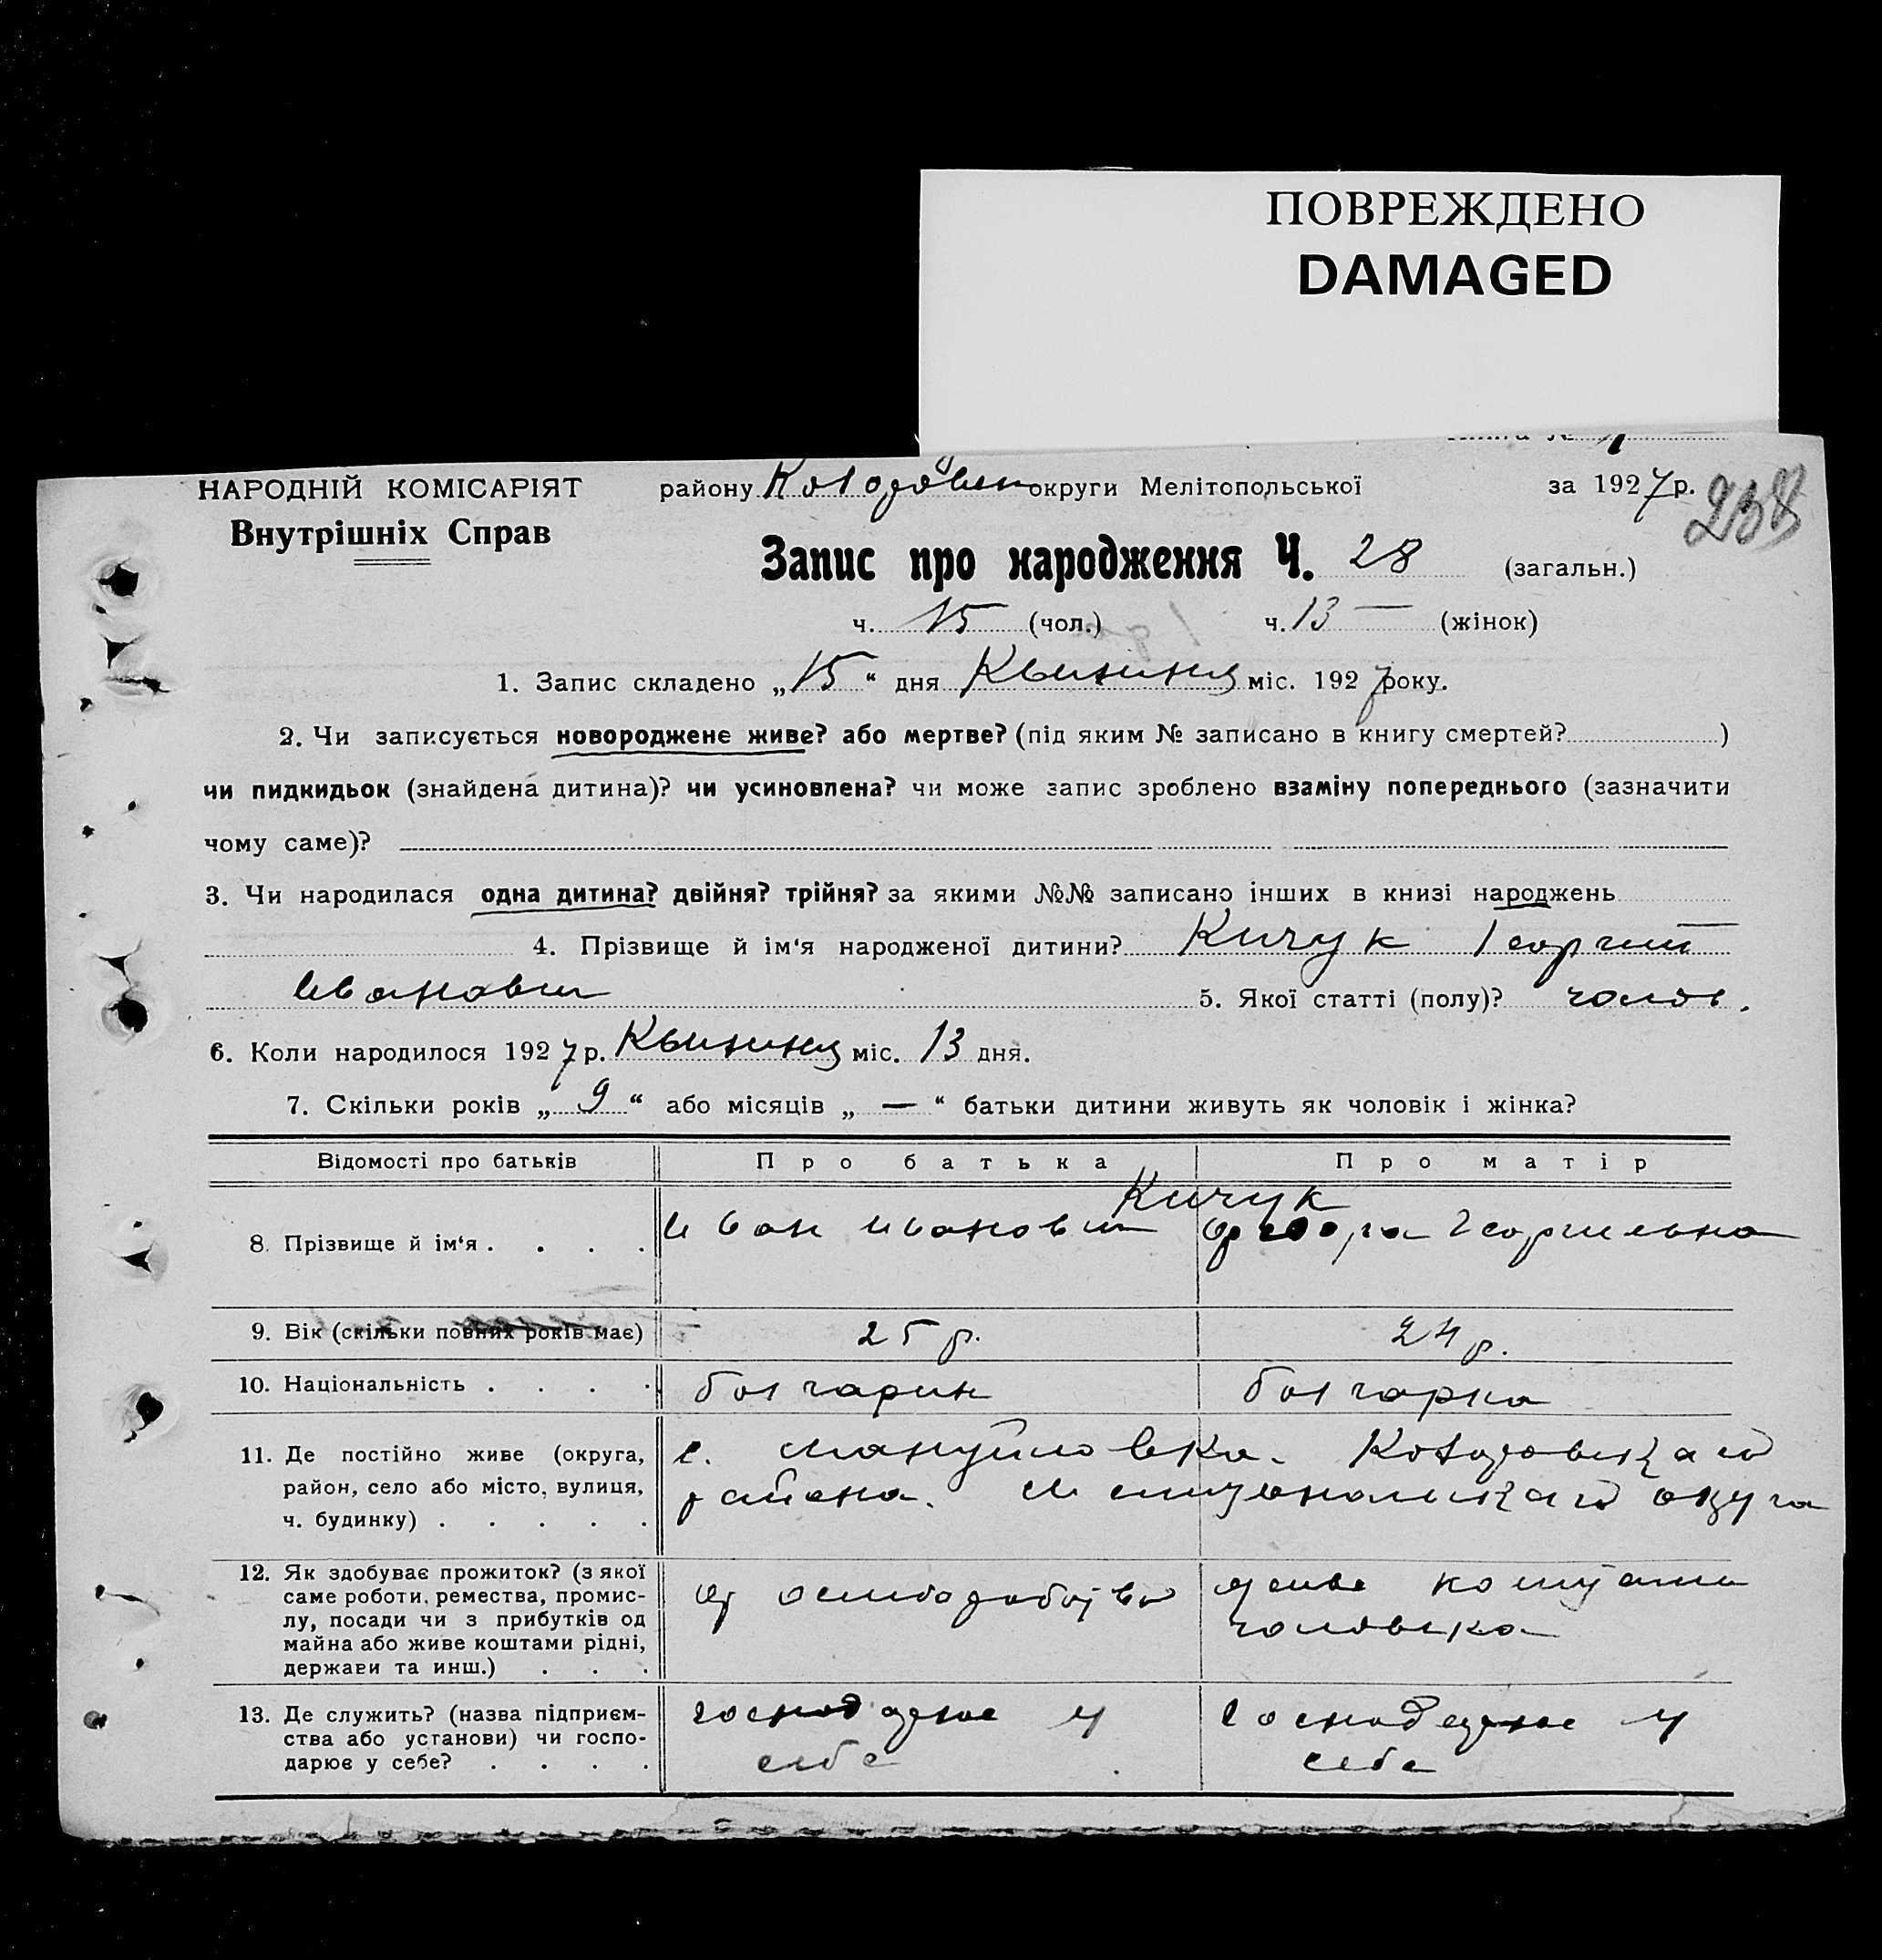 ПОВРЕЖДЕНО
DAMAGED
НАРОДНІЙ КОМІСАРІЯТ району округи Мелітопольської за 1927 р. 238
Внутрішніх Справ
Запис про народження Ч. 28 (загальн.)
ч. 15 (чол.) ч. 13 — (жінок)
1. Запис складено „15“ дня Квитня міс. 1927 року.
2. Чи записується новороджене живе? або мертве? (під яким № записано в книгу смертей? )
чи пидкидьок (знайдена дитина)? чи усиновлена? чи може запис зроблено взаміну попереднього (зазначити
чому саме)?
3. Чи народилася одна дитина? двійня? трійня? за якими №№ записано інших в книзі народжень
4. Прізвище й ім‘я народженої дитини? Кичук Георгий
Иванович 5. Якої статті (полу)? чолов.
6. Коли народилося 1927 р. Квитня міс. 13 дня.
7. Скільки років „9“ або місяців „—“ батьки дитини живуть як чоловік і жінка?
Відомості про батьків Про батька Про матір
Кичук
8. Прізвище й ім‘я . . . . Иван Иванович Георгиевна
9. Вік (скільки повних років має) 25 р. 24 р.
10. Національність . . . . болгарин болгарка
11. Де постійно живе (округа,
район, село або місто, вулиця,
ч. будинку) . . . . .
с. Мануйловка.
района.
12. Як здобуває прожиток? (з якої
саме роботи, ремества, промис-
лу, посади чи з прибутків од
майна або живе коштами рідні,
держави та инш.) . . .
живе коштами
чоловика
13. Де служить? (назва підприєм-
ства або установи) чи госпо-
дарює у себе? . . . .
господарює у
себе
господарює у
себе